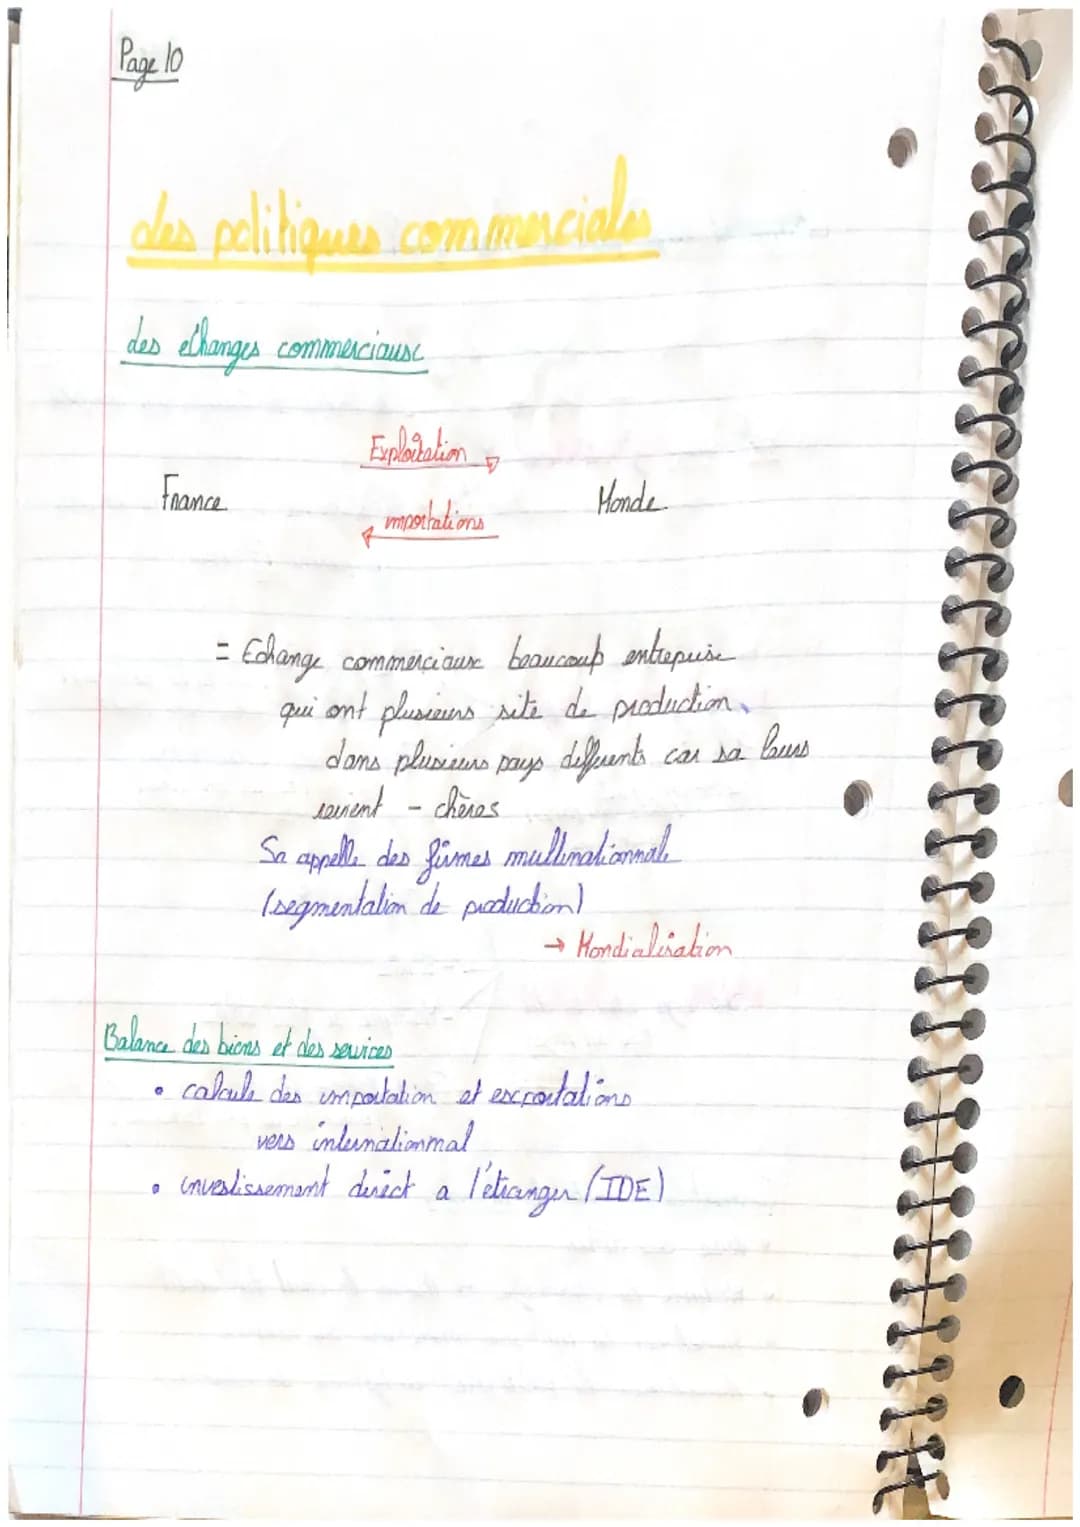 Page 10
des politiques commerciales
des echanges commerciaux
Exploitation
France
Monde
importations
= Echange commerciaux beaucoup entreprise
qui ont plusieurs site de production
dans plusieurs pays différents car sa leurs
revient - chères
Sa appelle des firmes multinationnale
(segmentation de production)
→ Mondialisation
Balance des biens et des services
• calcule des importation et exportations
vers internationnal
• investissement direct a l'étranger (IDE)